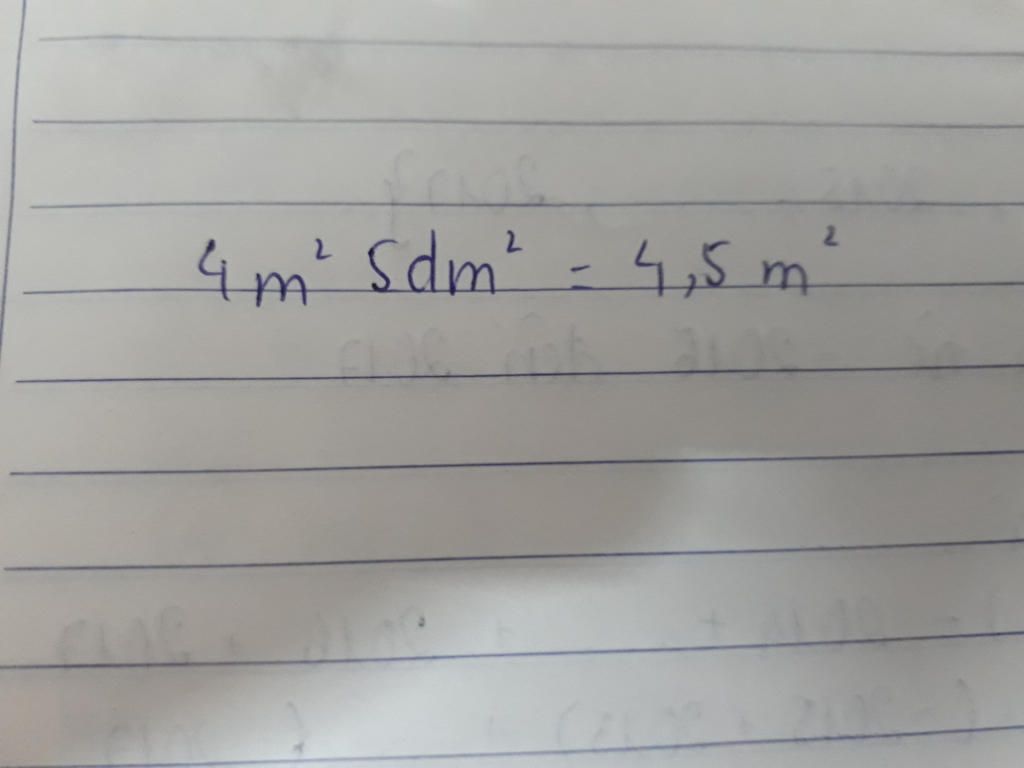 4m² 5dm² = 4,5 m²